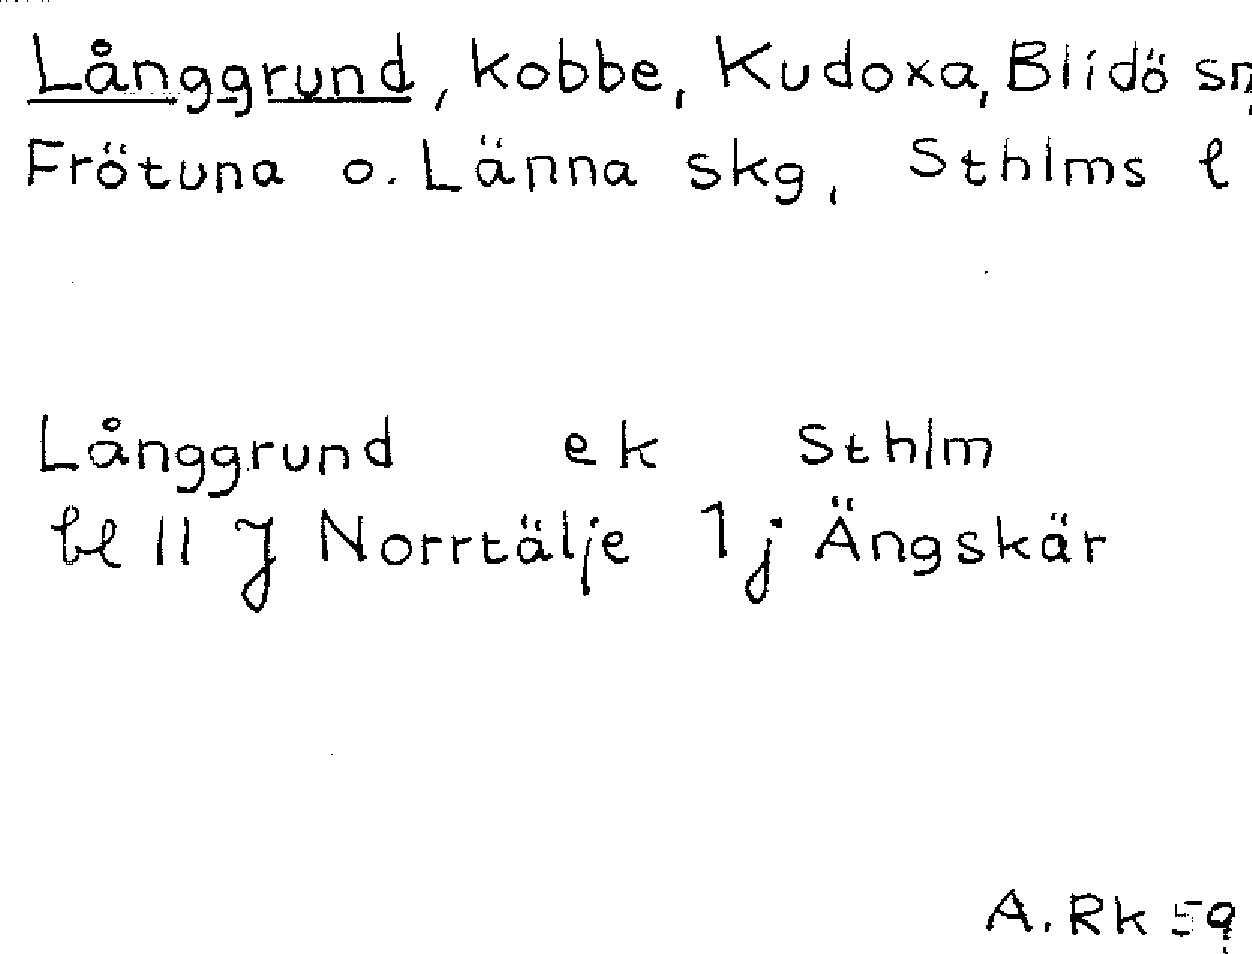 Långgrund, kobbe, Kudoxa, Blidö sn,
Frötuna o. Länna skg, Sthlms l
Långgrund ek Sthlm
bl 11 J Norrtälje 1j Ängskär
A. Rk 59